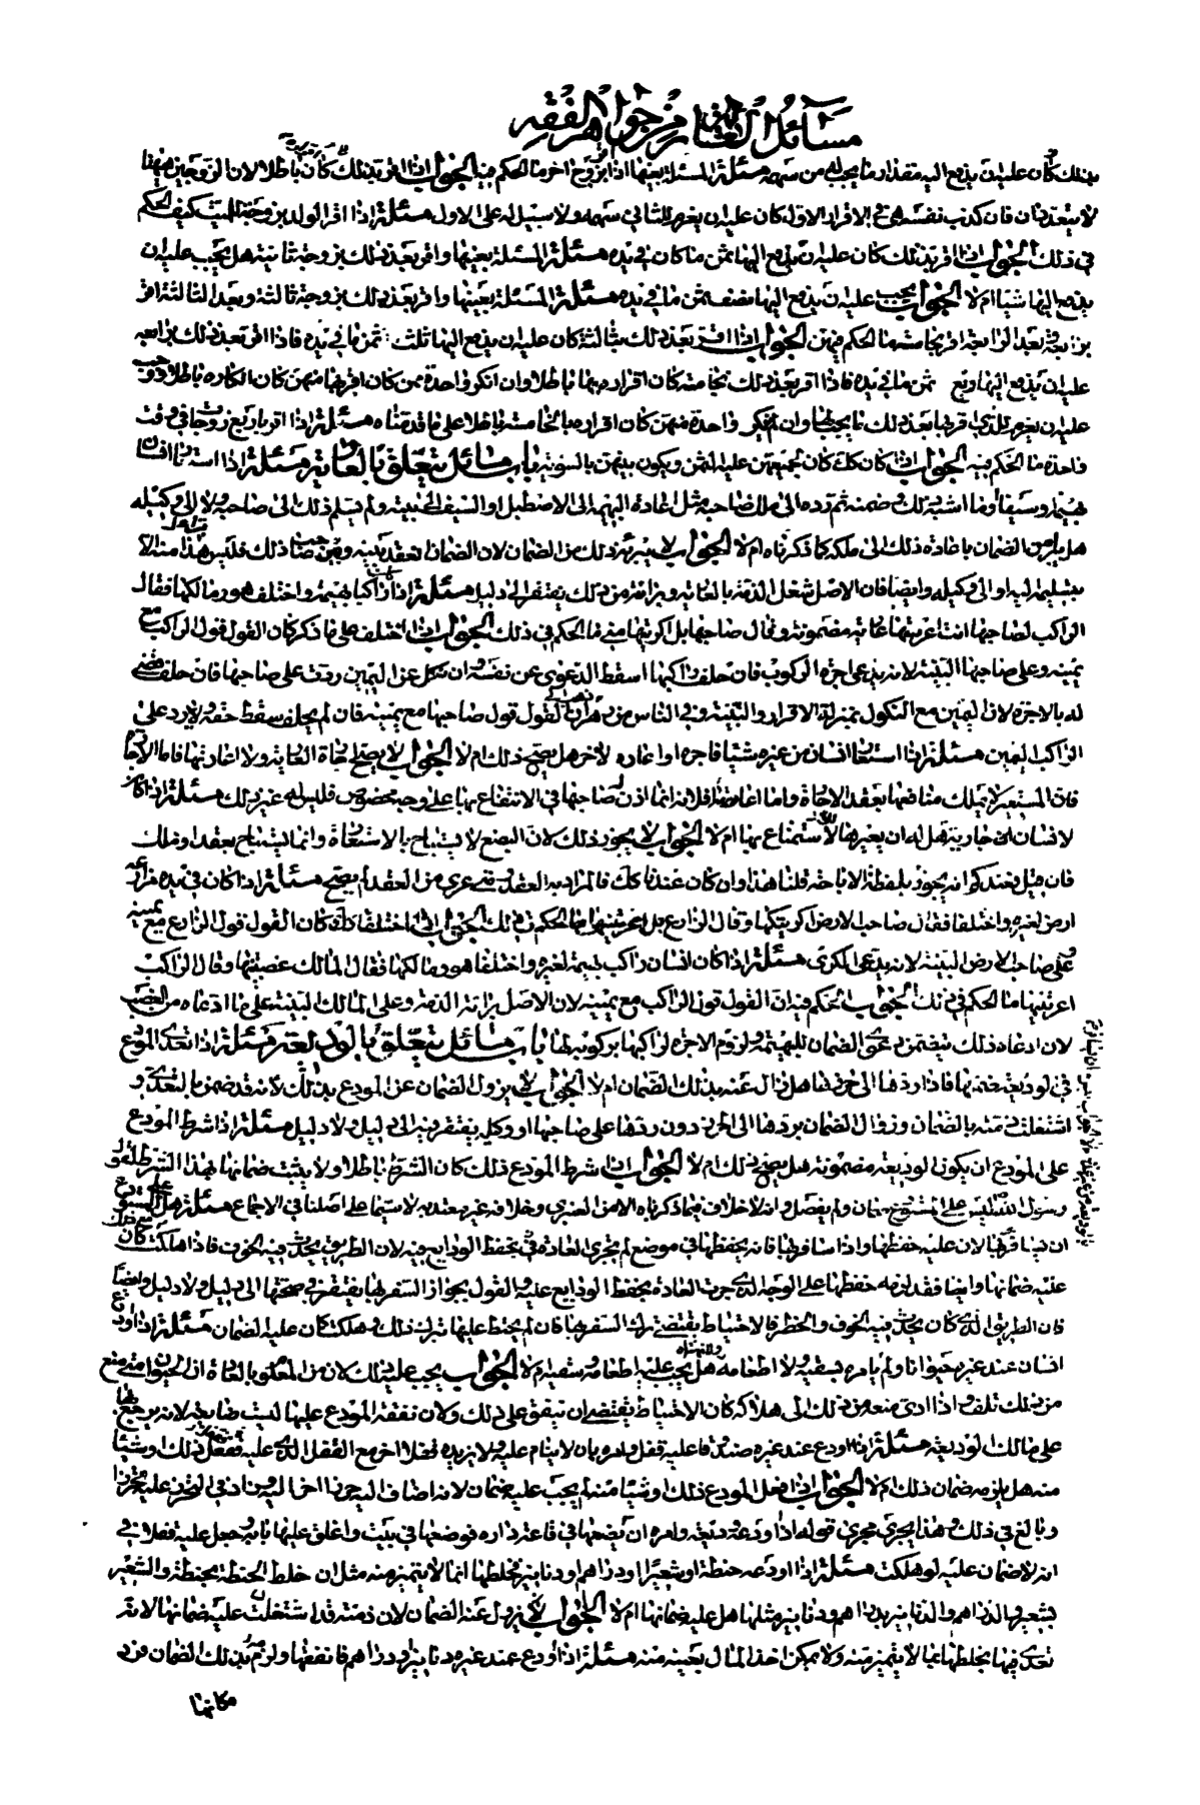 مسائل العارية من جواهر الفقه
بذلك كان عليه ان يدفع اليه مقدار ما يجب له من سهمه مسئلة المسئلة بعينها اذا اقر بزوج اخر ما الحكم فيه الجواب اذا اقر بذلك كان باطلا لان الزوجين هيهنا
لا يتقدران فان كذب نفسه في الاقرار الاول كان عليه ان يغرم للثاني سهمه ولا سبيل له على الاول مسئلة اذا اقر الولد بزوجة للميت كيف الحكم
في ذلك الجواب اذا اقر بذلك كان عليه ان يدفع اليها ثمن ما كان في يده مسئلة المسئلة بعينها واقر بعد ذلك بزوجة ثانية هل يجب عليه ان
يدفع اليها شيئا ام لا الجواب يجب عليه ان يدفع اليها نصف ثمن ما في يده مسئلة المسئلة بعينها واقر بعد ذلك بزوجة ثالثة وبعد الثالثة اقر
برابعة وبعد الرابعة اقر بخامسة ما الحكم فيهن الجواب اذا اقر بعد ذلك بثالثة كان عليه ان يدفع اليها ثلث ثمن ما في يده فاذا اقر بعد ذلك برابعة
عليه ان يدفع اليها ربع ثمن ما في يده فاذا اقر بعد ذلك بخامسة كان اقراره بها باطلا وان انكر واحدة ممن كان اقر بها منهن كان انكاره باطلا ووجب
عليه ان يغرم للتي اقر بها بعد ذلك ما يجب لها وان لم ينكر واحدة منهن كان اقراره بالخامسة باطلا على ما قدمناه مسئلة اذا اقر باربع زوجات في وقت
واحد ما الحكم فيه الجواب اذا كان كك كان لجميعهن عليه الثمن ويكون بينهن بالسوية باب مسائل يتعلق بالعارية مسئلة اذا استعار انسان
بهيمة وسيفا وما اشبه ذلك وضمنه ثم رده الى ملك صاحبه مثل اعادة البهيمة الى الاصطبل او السيف الى بيته ولم يسلم ذلك الى صاحبه ولا الى وكيله
هل يبرء من الضمان باعادة ذلك الى ملكه كما ذكرناه ام لا الجواب لا يبرئه ذلك من الضمان لان الضمان انعقد بينه وبين صاحب ذلك فليس يبرء منه الا
بتسليمه اليه او الى وكيله وايضا فان الاصل شغل الذمة بالعارية وبراءته من ذلك يفتقر الى دليل مسئلة اذا راكب بهيمة واختلف هو ومالكها فقال
الراكب لصاحبها انت اعرتنيها عارية مضمونة وقال صاحبها بل اكريتها مني ما الحكم في ذلك الجواب اذا اختلف على ما ذكر كان القول قول الراكب مع
يمينه وعلى صاحبها البينة لانه يدعي اجرة الركوب فان حلف راكبها اسقط الدعوى عن نفسه وان نكل عن اليمين ردت على صاحبها فان حلف قضي
له بالاجرة لان اليمين مع النكول بمنزلة الاقرار والبينة وفي الناس من ذهب الى ان القول قول صاحبها مع يمينه فان لم يحلف سقط حقه ولا يرد على
الراكب اليمين مسئلة اذا استعار انسان من غيره شيئا فاجره او اعاره لاخر هل يصح ذلك ام لا الجواب لا يصح اجارة العارية ولا اعارتها فاما الاجارة
فان المستعير لا يملك منافعها بعقد الاجارة واما اعارتها فلانه انما اذن له صاحبها في الانتفاع بها على وجه مخصوص فليس له غير ذلك مسئلة اذا كان
لانسان جارية هل له ان يعيرها للاستمتاع بها ام لا الجواب لا يجوز ذلك لان البضع لا يستباح بالاستعارة وانما يستباح بعقد او ملك
فان قيل فعندكم انه يجوز بلفظة الاباحة قلنا هذا وان كان عندنا كك فالمراد به العقد ومتى عري من العقد لم يصح مسئلة اذا كان في يده مزارعة
ارض لغيره واختلفا فقال صاحب الارض اكريتكها وقال الزارع بل اعرتنيها ما الحكم في ذلك الجواب اذا اختلفا كذلك كان القول قول الزارع مع يمينه
وعلى صاحب الارض البينة لانه يدعي الكرى مسئلة اذا كان انسان راكب بهيمة لغيره واختلفا هو ومالكها فقال المالك غصبتنيها وقال الراكب
اعرتنيها ما الحكم في ذلك الجواب الحكم فيه ان القول قول الراكب مع يمينه لان الاصل براءة الذمة وعلى المالك البينة على ما ادعاه من الغصب
لان ادعاه ذلك يتضمن دعوى الضمان للبهيمة ولزوم الاجرة لراكبها بركوبه لها باب مسائل يتعلق بالوديعة مسئلة اذا تعدى المودع
في الوديعة ضمنها فاذا ردها الى حرزها هل زال عنه بذلك الضمان ام لا الجواب لا يزول الضمان عن المودع بذلك لانه قد ضمن بالتعدي و
اشتغلت ذمته بالضمان وزوال الضمان بردها الى الحرز دون ردها على صاحبها او وكيله يفتقر فيه الى دليل ولا دليل مسئلة اذا شرط المودع
على المودع ان يكون الوديعة مضمونة هل يصح ذلك ام لا الجواب اذا شرط المودع ذلك كان الشرط باطلا ولا يثبت ضمانها بهذا الشرط لقول
رسول الله ليس على المستودع ضمان ولم يفصل وانه لا خلاف فيما ذكرناه الا من العنبري وخلافه غير معتد به لا سيما على اصلنا في الاجماع مسئلة هل للمستودع
ان يسافر بها لان عليه حفظها واذا سافر بها فانه يحفظها في موضع لم تجر العادة في حفظ الودايع فيه لان الطريق يحدث فيه الخوف فاذا هلكت كان
عليه ضمانها وايضا فقد لزمه حفظها على الوجه الذي جرت العادة بحفظ الودايع عليه والقول بجواز السفر بها يفتقر في صحتها الى دليل ولا دليل وايضا
فان الطريق الذي كان يحدث فيه الخوف والخطر فالاحتياط يقتضي ترك السفر بها فان لم يحتط عليها بترك ذلك وهلكت كان عليه الضمان مسئلة اذا اودع
انسان عند غيره حيوانا ولم يامره بسقيه ولا اطعامه ولا نهاه هل يجب عليه اطعامه وسقيه ام لا الجواب يجب عليه ذلك لان من المعلوم بالعادة ان الحيوان متى منع
من ذلك تلف واذا ادى منعه من ذلك الى هلاكه كان الاحتياط يقتضي ان ينفق على ذلك ولان نفقة المودع عليها ليست ضايعة لانه يرجع بها
على مالك الوديعة مسئلة اذا اودع عند غيره صندوقا عليه قفل وامره بان لا ينام عليه ولا يزيده قفلا اخر مع القفل الذي عليه ففعل ذلك او شيئا
منه هل يلزمه ضمان ذلك ام لا الجواب اذا فعل المودع ذلك او شيئا منه لم يجب عليه ضمان لانه اضاف اليه حرزا اخر اليه ومن زاد في التحرز عليه محرزا
وبالغ في ذلك وهذا يجري مجرى قوله اذا اودعه وديعة وامره ان يضعها في قاعة داره فوضعها في بيت واغلق عليها بابه وجعل عليه قفلا في
انه لا ضمان عليه لو هلكت مسئلة اذا اودعه حنطة او شعيرا او دراهم او دنانير فخلطها بما لا يتميز منه مثل ان خلط الحنطة بحنطة والشعير
بشعير والدراهم والدنانير بدراهم ودنانير مثلها هل عليه ضمانها ام لا الجواب لا يزول عنه الضمان لان ذمته قد اشتغلت عليه ضمانها لانه
تعدى فيها بخلطها بما لا يتميز منه ولا يمكن اخذ المال بعينه منه مسئلة اذا اودع عند غيره دنانير او دراهم فانفقها ولزمه بذلك الضمان فرد
مكانها